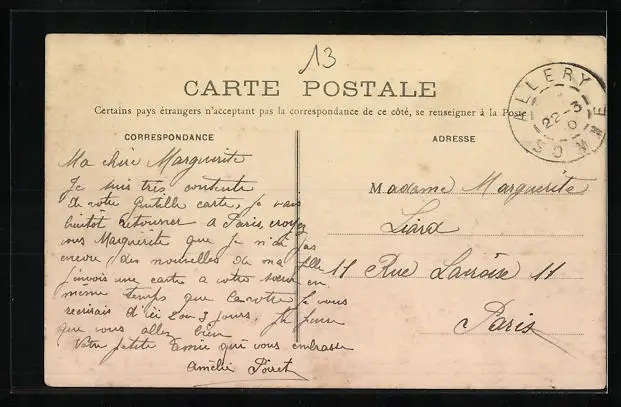 13
CARTE POSTALE
Certains pays étrangers n'acceptant pas la correspondance de ce côté, se renseigner à la Poste
ALLERY
22-3
SOMME
CORRESPONDANCE
ADRESSE
Ma chère Marguerite
Je suis très contente
de votre gentille carte, je vais
bientôt retourner a Paris, croyez
vous Marguerite que je n'ai pas
encore des nouvelles de ma fille
j'envois une carte a votre sœur en
même temps que la votre je vous
recrirais d'ici 2 ou 3 jours, je pense
que vous allez bien
Votre petite amie qui vous embrasse
Amélie
Madame Marguerite
Liard
11 Rue 11
Paris